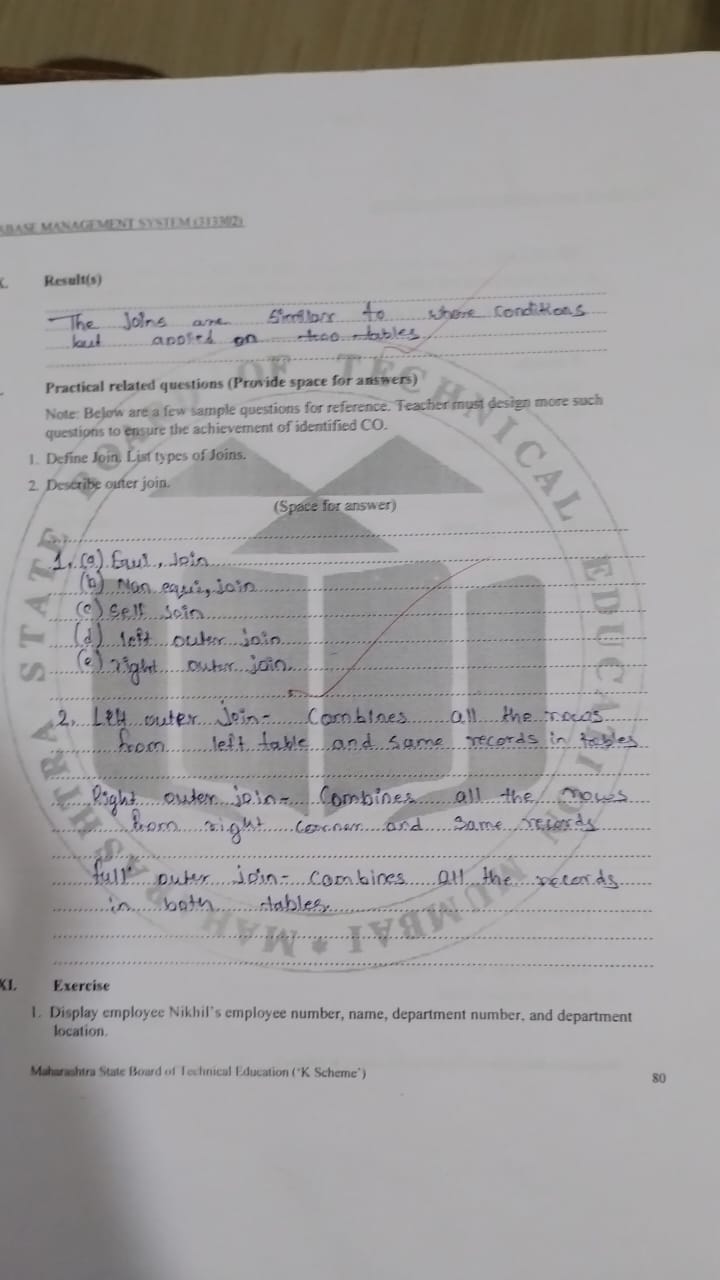 BASE MANAGEMENT SYSTEM (313302)
Result(s)
The Joins are similar to where conditions
but applied on two tables
Practical related questions (Provide space for answers)
Note: Below are a few sample questions for reference. Teacher must design more such
questions to ensure the achievement of identified CO.
1. Define Join. List types of Joins.
2. Describe outer join.
(Space for answer)
1. (a) Equi, Join
(b) Non equi, join
(c) Self Join
(d) left outer join
(e) right outer join.
2. Left outer Join- Combines all the rows
from left table and same records in tables
Right outer join- Combines all the rows
from right corner and same records
full outer join- combines all the records
in both tables.
MAHARASHTRA STATE BOARD OF TECHNICAL EDUCATION MUMBAI
XI. Exercise
1. Display employee Nikhil's employee number, name, department number, and department
location.
Maharashtra State Board of Technical Education ('K Scheme')
80